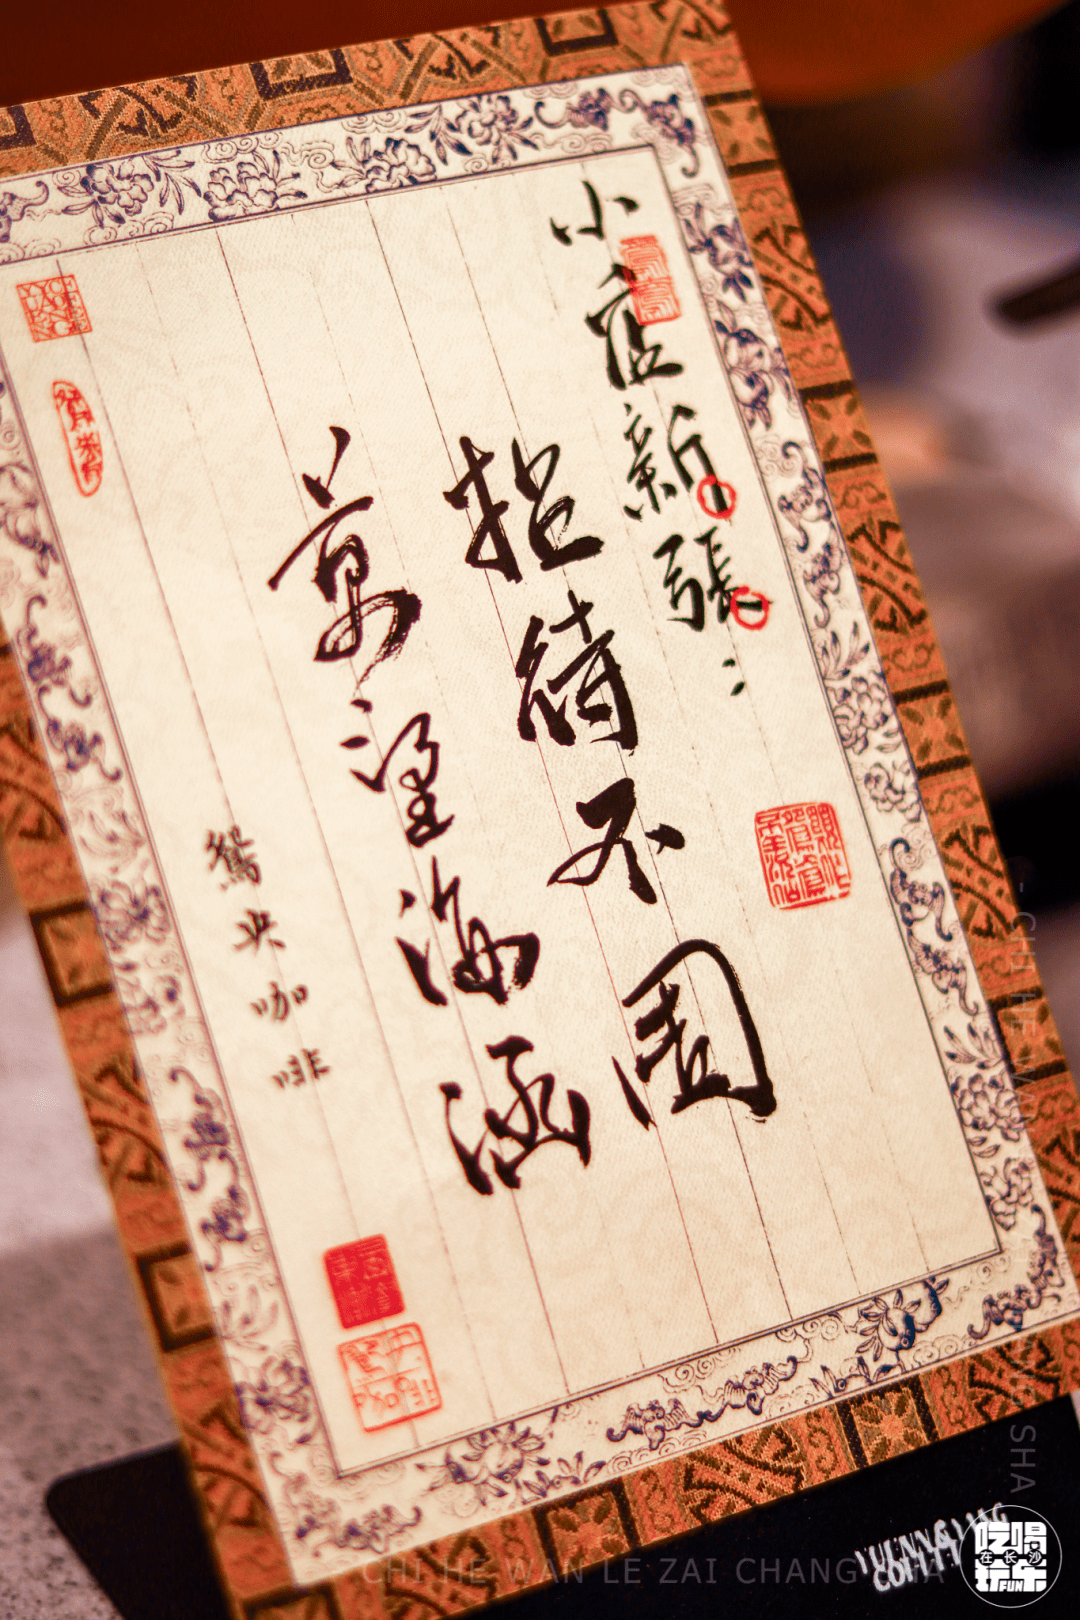 小店新張：
招待不周
萬望海涵
鴛央咖啡
CHI HE WAN LE ZAI CHANG SHA
吃喝
在长沙
玩乐
FUN